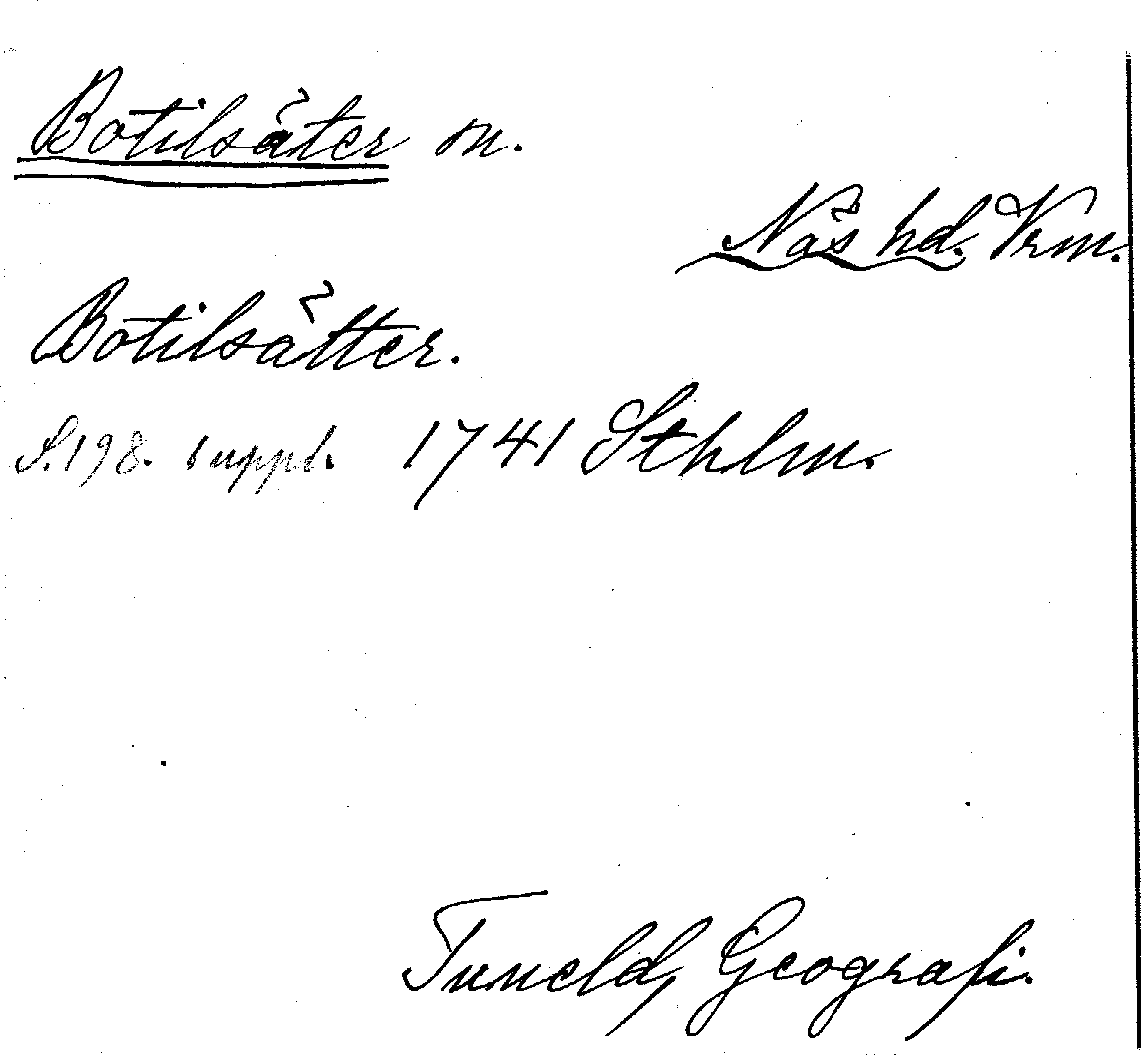 Botilsäter sn.
Näs hd. Vrm.
Botilsätter.
S. 198. suppl. 1741 Sthlm.
Tuneld, Geografi.